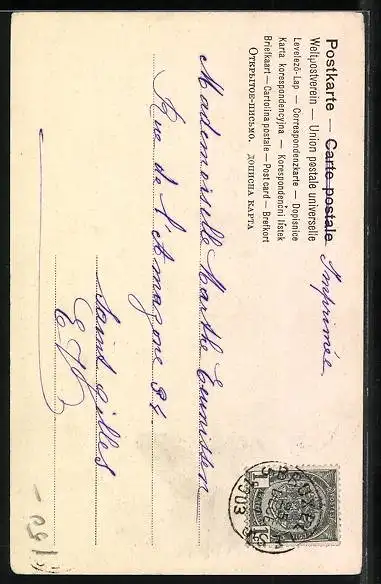 Postkarte — Carte postale
Weltpostverein — Union postale universelle
Levelező-Lap — Correspondenzkarte — Dopisnice
Karta korespondencyjna — Korespondenčni listek
Briefkaart — Cartolina postale — Post card — Brefkort
Открытое-письмо. дописна карта
Imprimée
Mademoiselle Marthe Teunissen
Rue de l'Amazone 34
Saint Gilles
E/V
1903
1